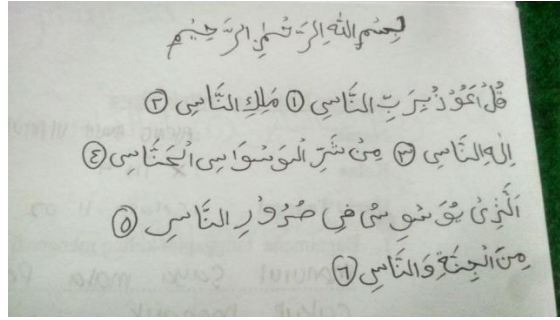 بِسْمِ اللهِ الرَّحْمٰنِ الرَّحِيْمِ
قُلْ اَعُوْذُ بِرَبِّ النَّاسِ ١ مَلِكِ النَّاسِ ٢
اِلٰهِ النَّاسِ ٣ مِنْ شَرِّ الْوَسْوَاسِ الْخَنَّاسِ ٤
الَّذِيْ يُوَسْوِسُ فِيْ صُدُوْرِ النَّاسِ ٥
مِنَ الْجِنَّةِ وَالنَّاسِ ٦